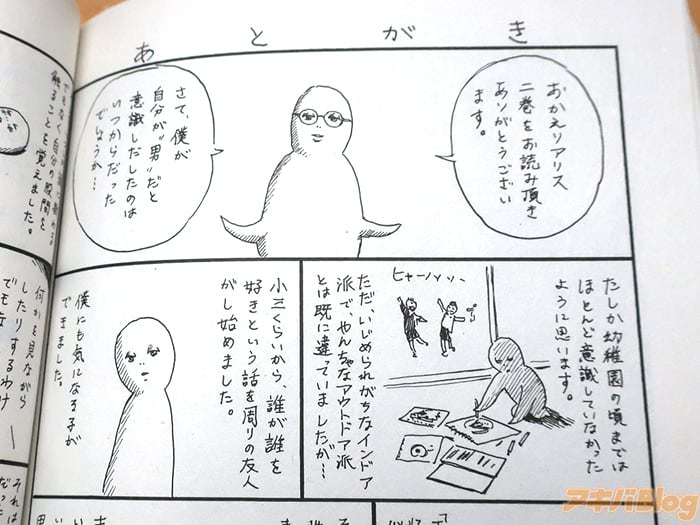 あとがき
おかえりアリス
二巻をお読み頂き
ありがとうござい
ます。
さて、僕が
自分が“男”だと
意識しだしたのは
いつからだった
でしょうか…
たしか幼稚園の頃までは
ほとんど意識していなかった
ように思います。
ヒャーハハハー
ただ、いじめられがちなインドア
派で、やんちゃなアウトドア派
とは既に違っていましたが…
小三くらいから、誰が誰を
好きという話を周りの友人
がし始めました。
僕にも気になる子が
できました。
触ることを覚えました。
何かを見ながら
したりするわけ
でもな
それは
アキバBlog